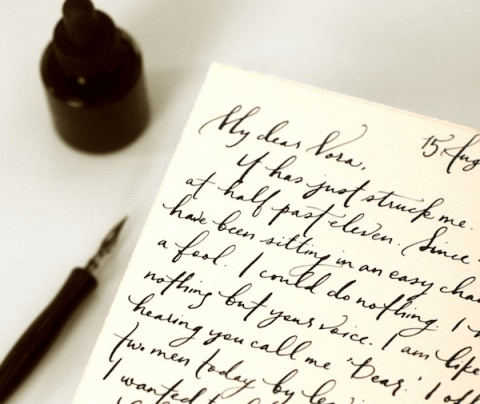 My dear Nora, 15 Aug
It has just struck me.
at half past eleven. Since
have been sitting in an easy chai
a fool. I could do nothing. I
nothing but your voice. I am like
hearing you call me 'Dear.' I off
two men today by le
I wanted t